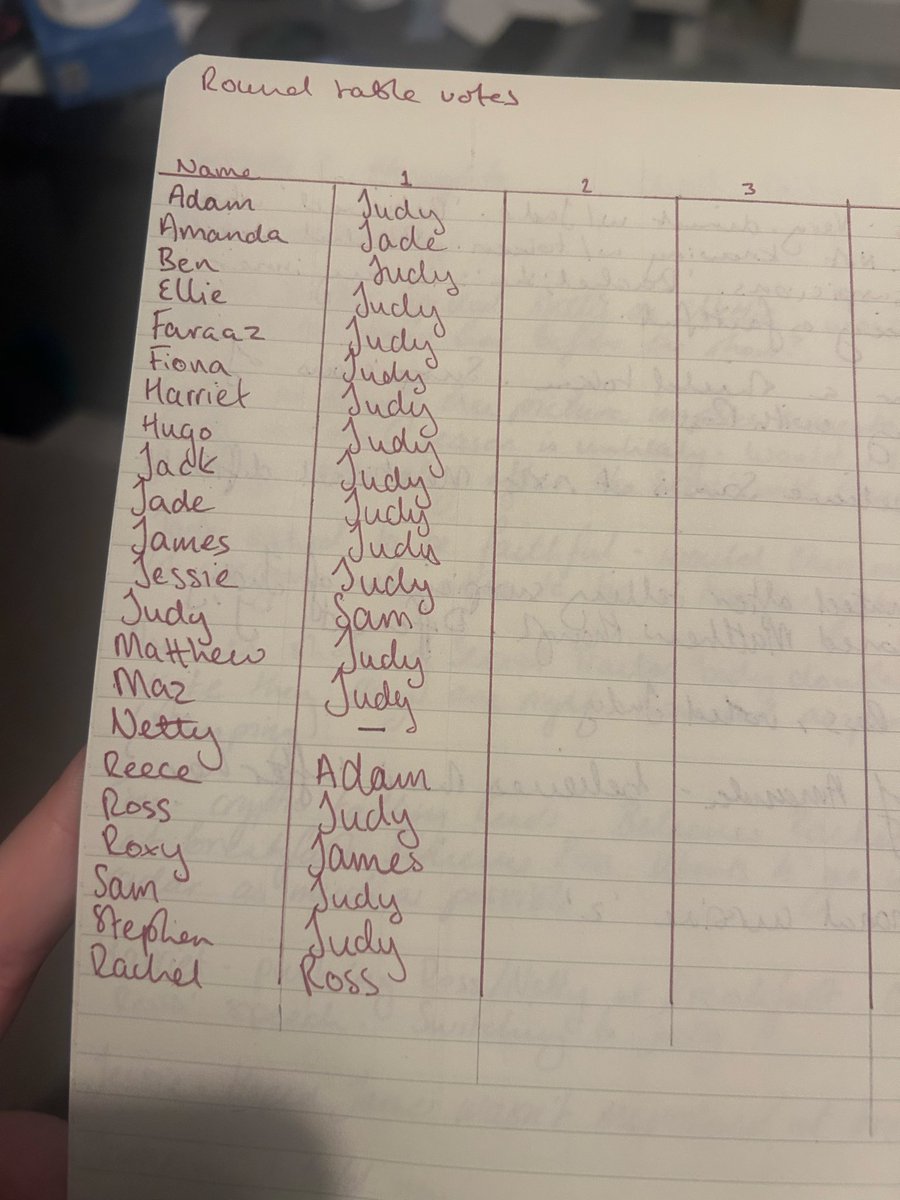 Round table votes
Name 1 2 3
Adam Judy
Amanda Jade
Ben Judy
Ellie Judy
Faraaz Judy
Fiona Judy
Harriet Judy
Hugo Judy
Jack Judy
Jade Judy
James Judy
Jessie Judy
Judy Sam
Matthew Judy
Maz Judy
Netty —
Reece Adam
Ross Judy
Roxy James
Sam Judy
Stephen Judy
Rachel Ross